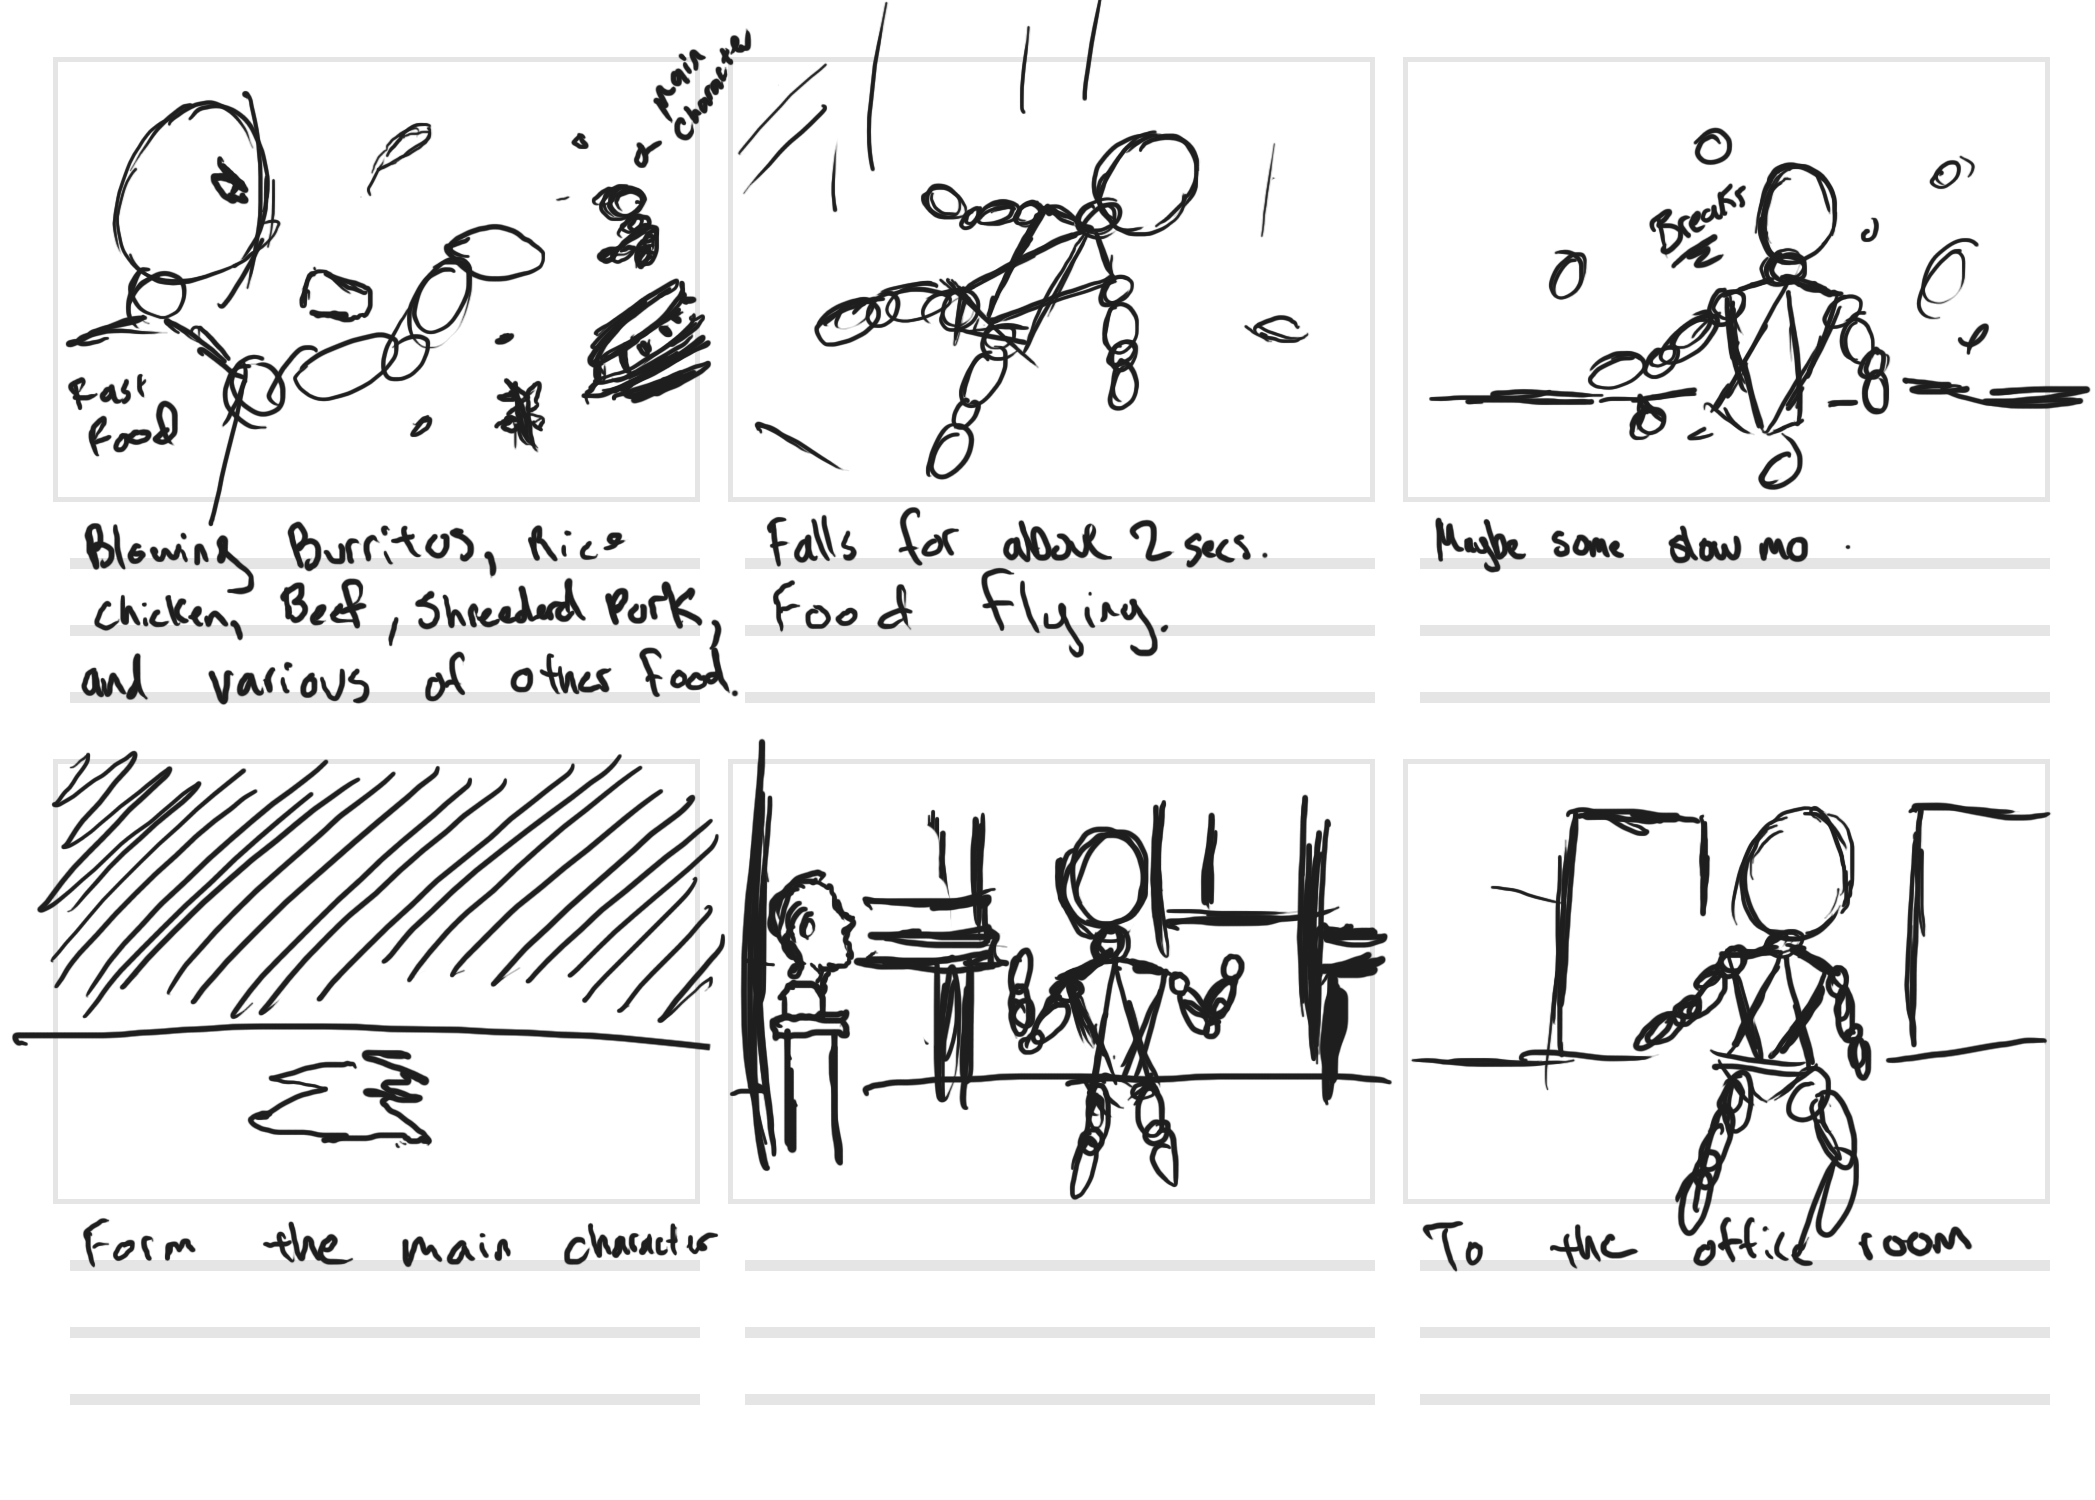 Main
Character
Fast
Food
Breaks
Blowing Burritos, Rice
chicken, Beef, Shreeded Pork,
and various of other food.
Falls for about 2 secs.
Food Flying.
Maybe some slow mo.
Form the main character
To the office room